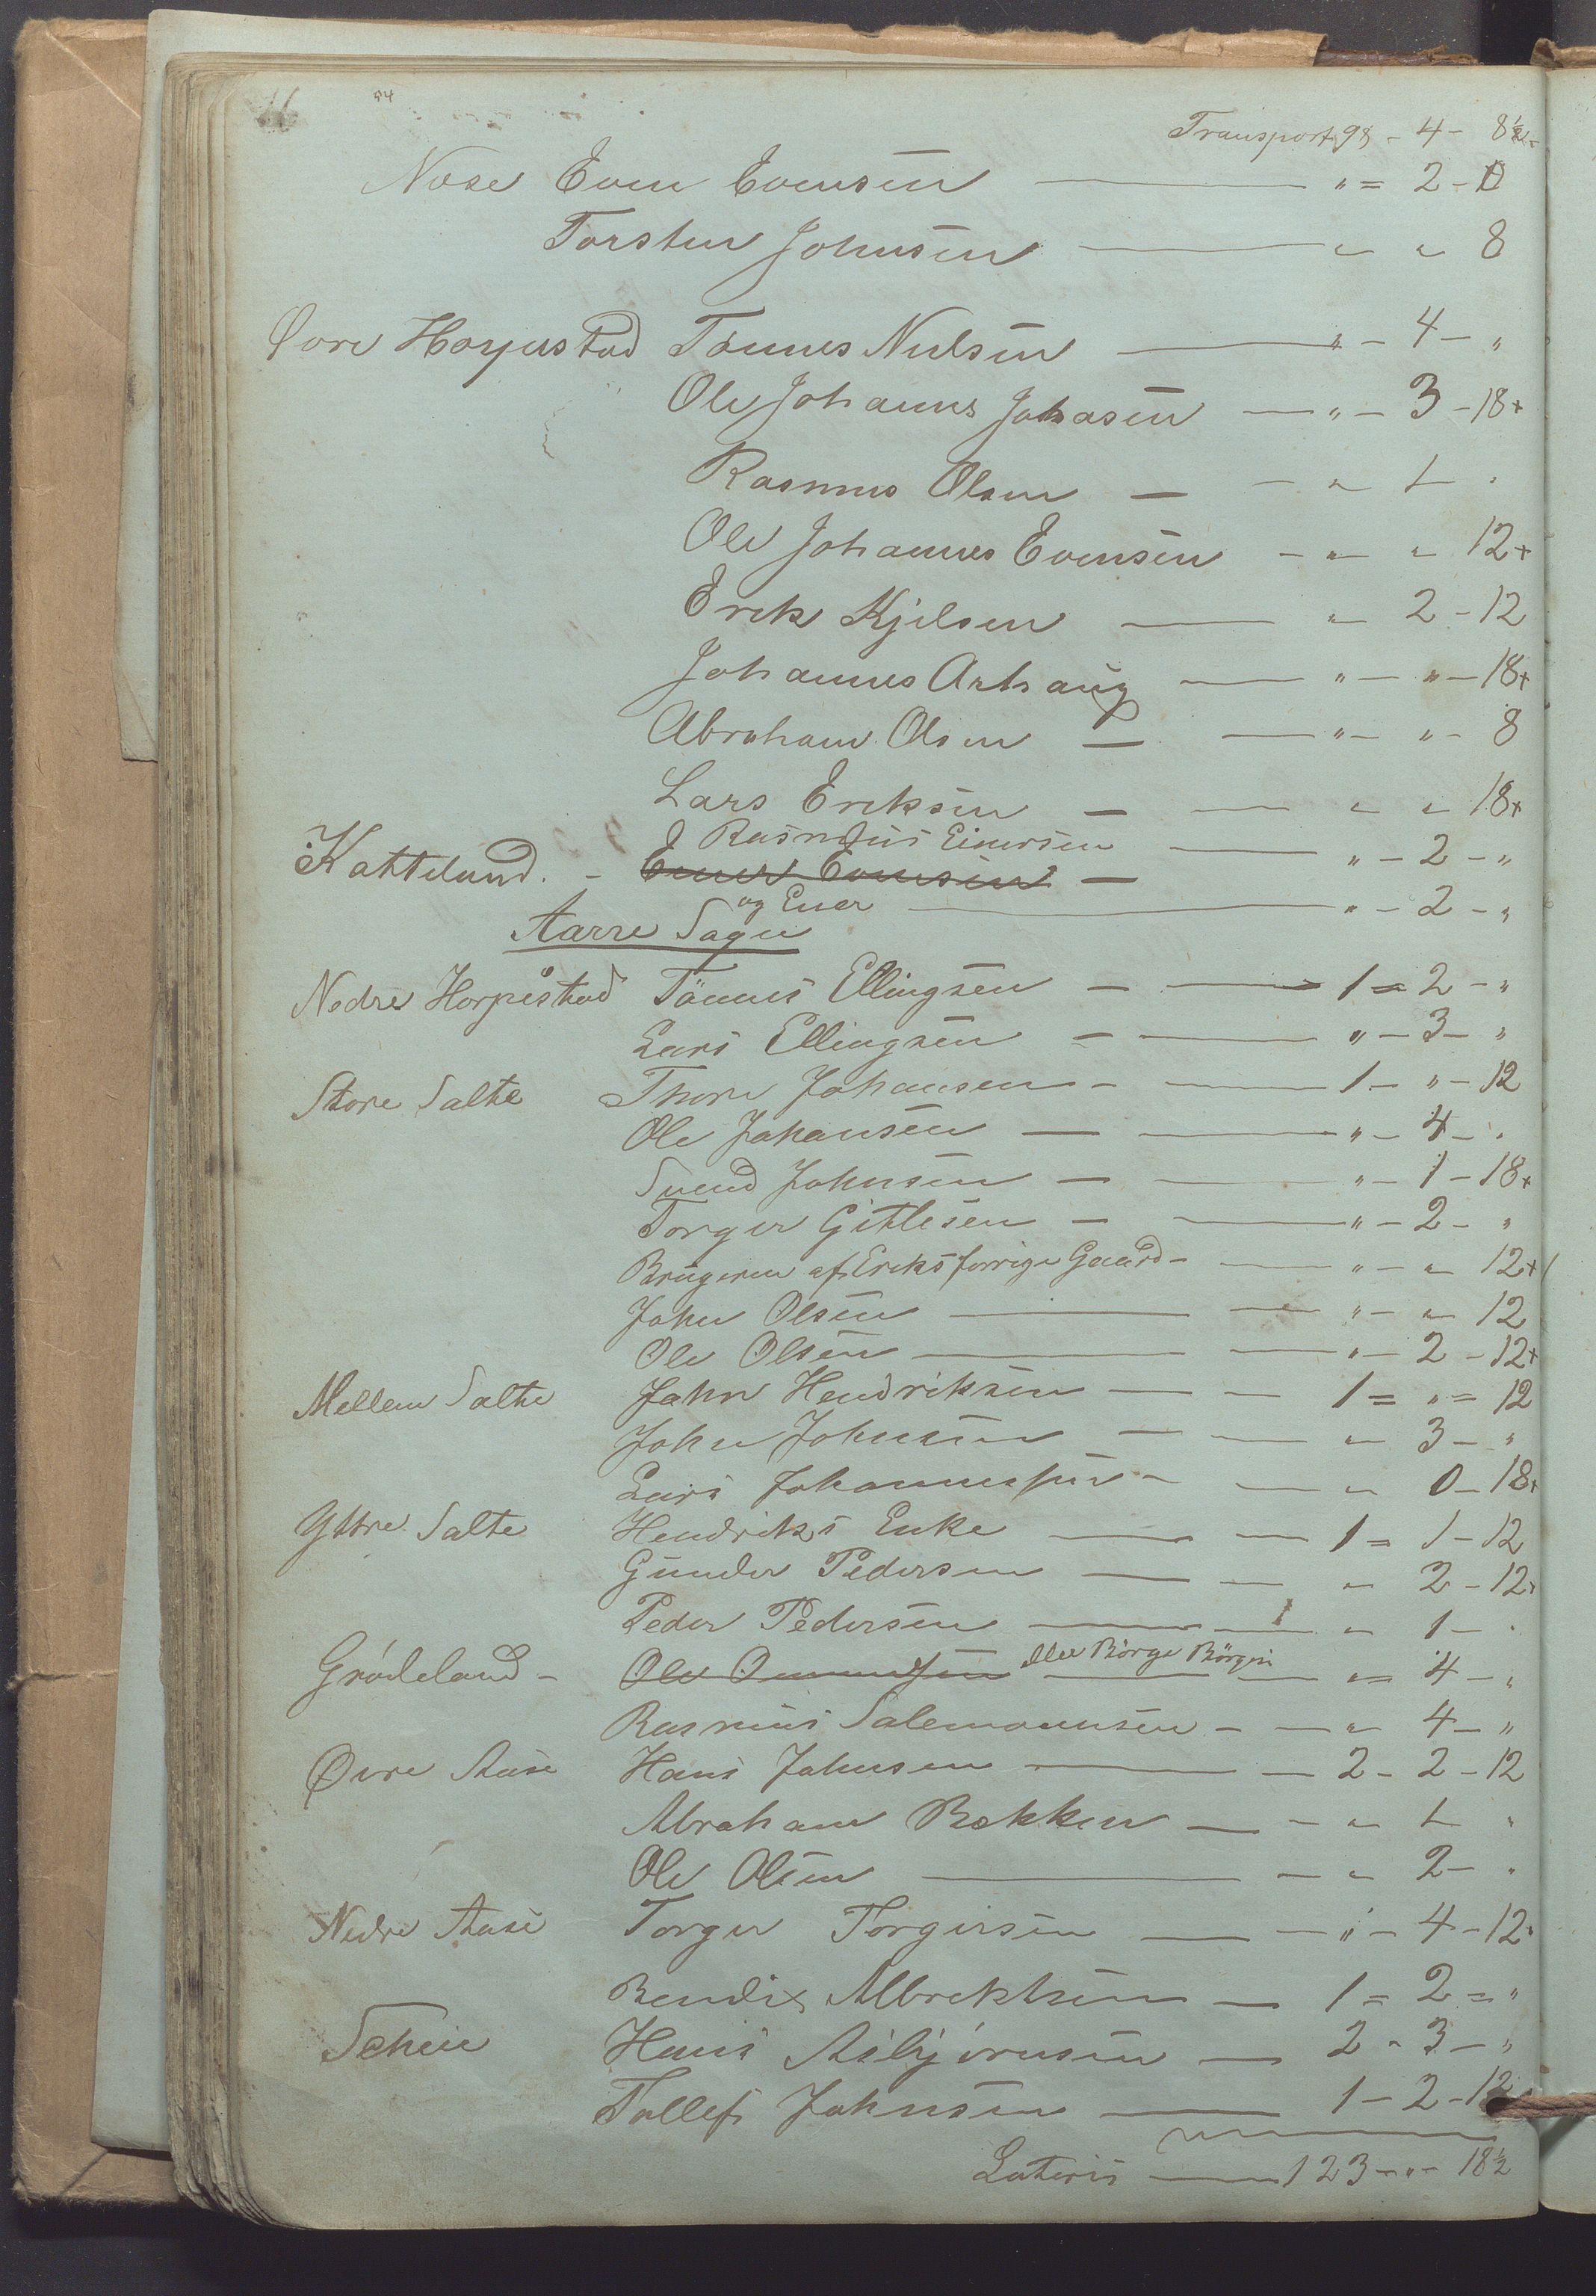 Transport 98 - 4 - 8½
Nose Even Evensen — " = 2 - 0
Torsten Johnsen — " " 8
Øvre Horpestad Tönnes Nielsen — " - 4 - "
Ole Johannes Johnsen — " - 3 - 18+
Rasmus Olsen — " 1 - "
Ole Johannes Evensen - " - " 12+
Erik Kjelsen — " 2 - 12
Johannes Arhaug — " - " - 18+
Abraham Olsen — " - " - 8
Lars Eriksen — " " 18+
Rasmus Einersen
Katteland. - Einer Evensen — " - 2 - "
og Ener — " - 2 - "
Aarre Sogn
Nedre Horpestad Tönnes Ellingsen — 1 = 2 - "
Lars Ellingsen — " - 3 - "
Store Salte Thore Johansen - 1 - " - 12
Ole Johansen — " - 4 - "
Svend Johnsen — " - 1 - 18+
Torger Gitlesen — " - 2 - "
Brugeren af Eriks forrige Gaard - " - " 12+
John Olsen — " - " 12
Ole Olsen — " - 2 - 12+
Mellem Salte John Hendriksen — 1 = " = 12
John Johnsen — " 3 - "
Lars Johannessen - " 0 - 18+
Yttre Salte Hendriks Enke — 1 = 1 - 12
Gunder Pedersen — " 2 - 12+
Peder Pedersen — " 1 - "
Grödeland - Ole Ommundsen eller Börge Börgesen — " = 4 - "
Rasmus Salemonsen - " 4 - "
Øvre Aase Hans Johnsen — 2 - 2 - 12
Abraham Bekken — " 1 - "
Ole Olsen — " 2 - "
Nedre Aase Torger Torgersen — " - 4 - 12
Bendix Albrektsen — 1 = 2 = "
Scheie Hans Asbjörnsen — 2 - 3 - "
Tollef Johnsen — 1 - 2 - 12
Lateris — 123 - " - 18½